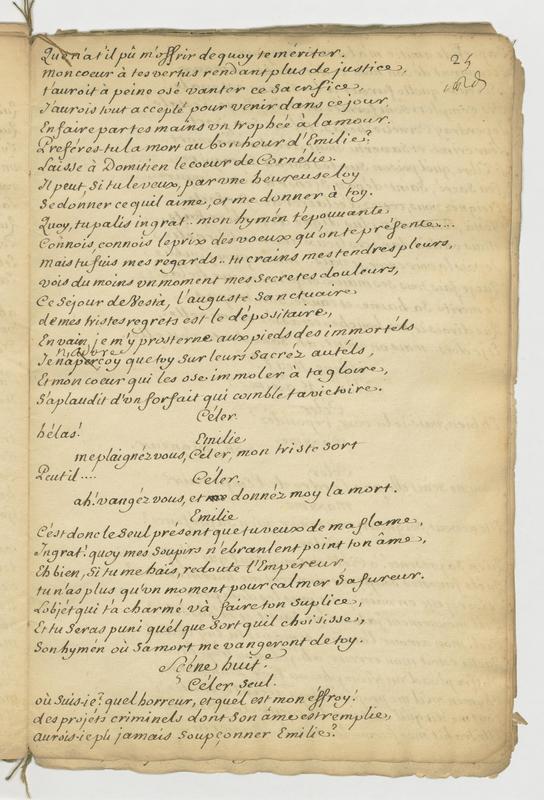 Que n'a t'il pû m'offrir de quoy te mériter.
mon coeur à tes vertus rendant plus de justice,
t'auroit à peine osé vanter ce sacrifice,
J'aurois tout accepté pour venir dans ce jour
En faire par tes mains un trophée à l'amour.
Préferés-tu la mort au bonheur d'Emilie?
Laisse à Domitien le coeur de Cornélie.
Il peut, Si tu le veux, par une heureuse loy
Se donner ce qu'il aime, et me donner à toy.
Quoy, tu palis ingrat.. mon hymén t'épouuante
Connois, connois le prix des voeux qu'on te présente...
mais tu fuis mes regards.. tu crains mes tendres pleurs,
vois du moins un moment mes secretes douleurs,
Ce Séjour de Vesta, l'auguste Sanctuaire
de mes tristes regrets est le dépositaire,
En vain je m'y prosterne aux pieds des immortéls
Je n'aperçoy que toy sur leurs Sacréz autéls,
Et mon coeur qui les ose immoler à ta gloire,
S'aplaudit d'un forfait qui comble ta victoire.
Céler.
hélas!
Emilie
me plaignéz vous, Céler, mon triste sort
Peut il....
Céler.
ah! vangéz vous, et donnéz moy la mort.
Emilie
C'est donc le Seul présent que tu veux de ma flame,
Ingrat! quoy mes Soupirs n'ébranlent point ton âme,
Eh bien, Si tu me hais, redoute l'Empereur,
tu n'as plus qu'un moment pour calmer Sa fureur.
L'objét qui t'a charmé và faire ton suplice,
Et tu Seras puni quél que Sort qu'il choisisse,
Son hymén où Sa mort me vangeront de toy.
Scéne huit.e
Céler Seul.
où suis-je? quel horreur, et quél est mon éffroy!
des projéts criminels dont Son âme est remplie,
aurois-je pû jamais Soupçonner Emilie?